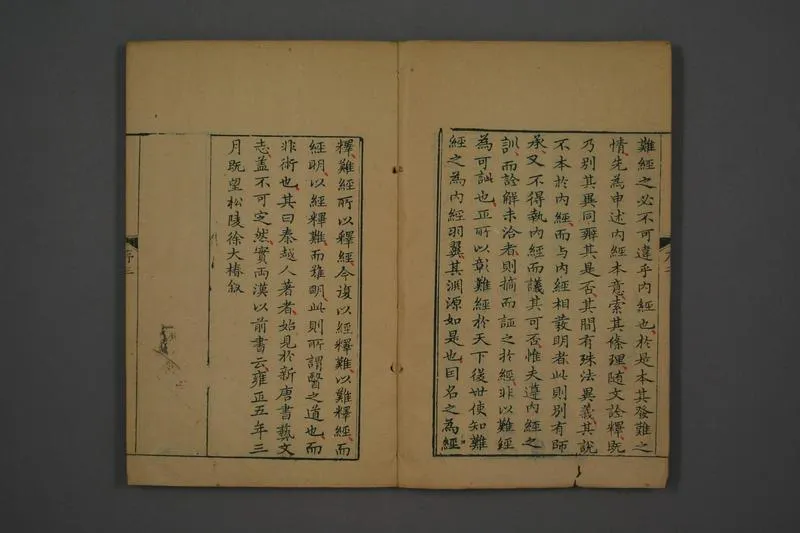 難經之必不可違乎内經也於是本其發難之
情先為申述内經本意索其條理隨文詮釋既
乃別其異同辨其是否其間有殊法異義其說
不本於内經而與内經相發明者此則別有師
承又不得執内經而議其可否惟夫遵内經之
訓而詮解未洽者則摘而証之於經非以難經
為可訕也正所以彰難經於天下後世使知難
經之為内經羽翼其淵源如是也因名之為經
釋難經所以釋經今復以經釋難以難釋經而
經明以經釋難而難明此則所謂醫之道也而
非術也其曰秦越人著者始見於新唐書藝文
志蓋不可定然實両漢以前書云雍正五年三
月既望松陵徐大椿叙